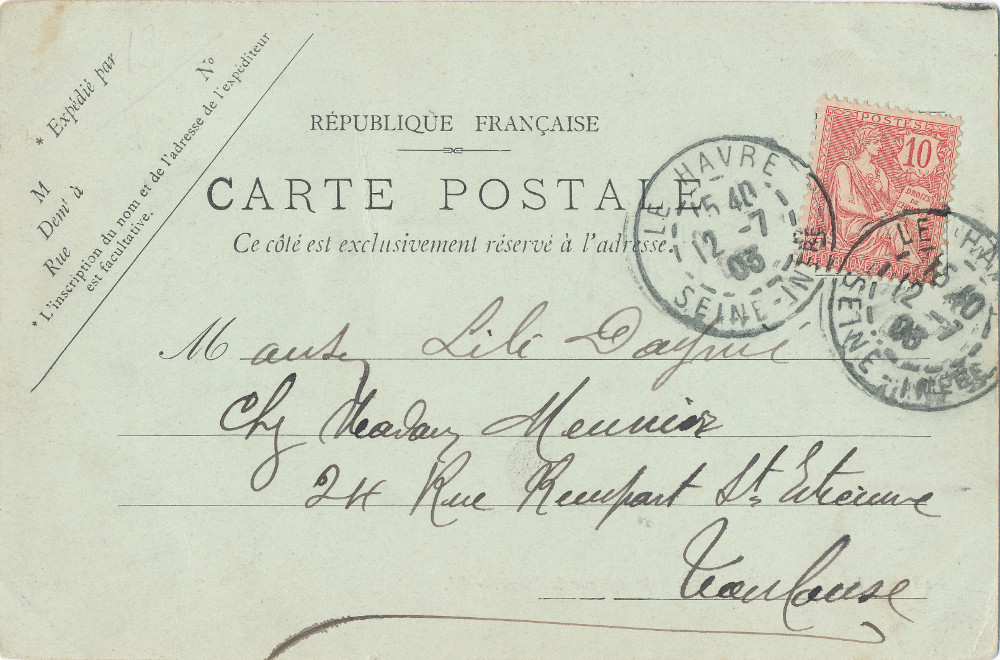 * Expédié par
M
Demt à
Rue
No
* L'inscription du nom et de l'adresse de l'expéditeur
est facultative.
RÉPUBLIQUE FRANÇAISE
CARTE POSTALE
Ce côté est exclusivement réservé à l'adresse.
POSTES
10
LE HAVRE
15 40
12 -7
03
SEINE-INFRE
LE HAVRE
12 -7
03
SEINE-INFRE
M Lili
Chez Madame Meunier
24 Rue Rempart St Etienne
Toulouse